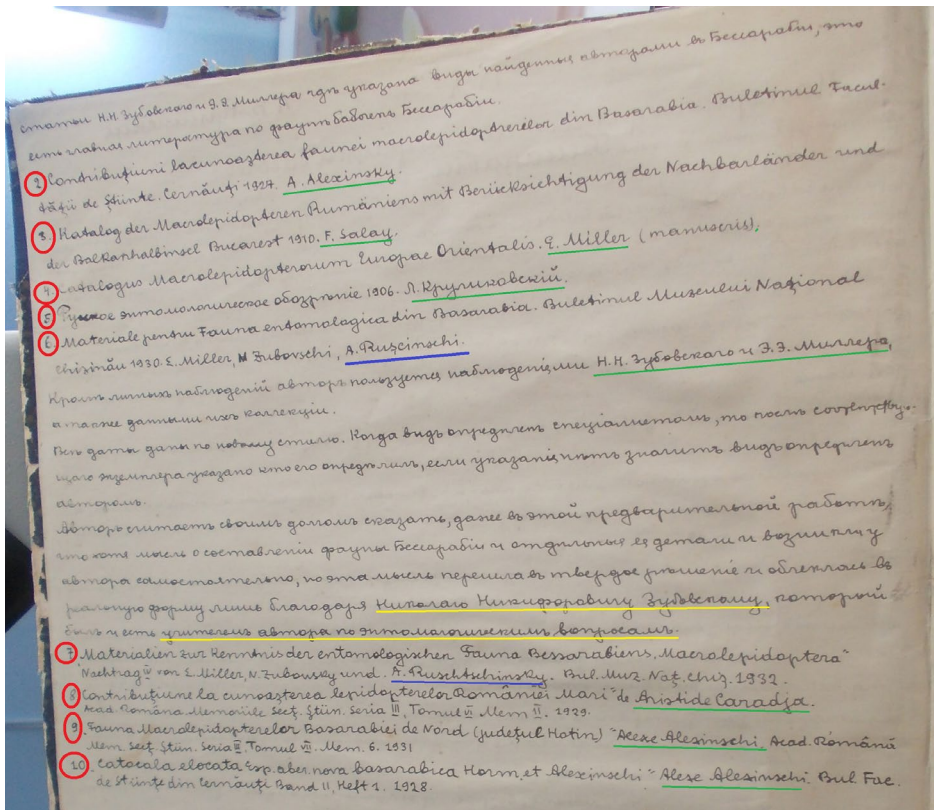 статьи Н.Н. Зубовскаго и Э.Э. Миллера гдѣ указана виды найденные авторами въ Бессарабіи, это
есть главная литература по фаунѣ бабочекъ Бессарабіи.
2 Contribuţiuni la cunoaşterea faunei macrolepidopterelor din Basarabia. Buletinul Facul-
tăţii de Ştiinte. Cernăuţi 1927. A. Alexinsky.
3. Katalog der Macrolepidopteren Rumäniens mit Berücksichtigung der Nachbarländer und
der Balkanhalbinsel Bucarest 1910. F. Salay.
4. Catalogus Macrolepidopterorum Europae Orientalis. E. Miller (manuscris).
5 Русское энтомологическое обозрѣніе 1906. Л. Круликовскій.
6. Materiale pentru Fauna entomologica din Basarabia. Buletinul Muzeului Naţional
Chişinău 1930. E. Miller, N Zubovschi, A. Ruşcinschi.
Кромѣ личныхъ наблюденій авторъ пользуется наблюденіями Н.Н. Зубовскаго и Э.Э. Миллера,
а также данными ихъ коллекціи.
Всѣ даты даны по новому стилю. Когда видъ опредѣленъ спеціалистомъ, то послѣ соотвѣтству-
щаго экземпляра указано кто его опредѣлилъ, если указанія нѣтъ значитъ видъ опредѣленъ
авторомъ.
Авторъ считаетъ своимъ долгомъ сказать, даже въ этой предварительной работѣ,
что хотя мысль о составленіи фауны Бессарабіи и отдѣльныя ея детали и возникли у
автора самостоятельно, но эта мысль перешла въ твердое рѣшеніе и облеклась въ
реальную форму лишь благодаря Николаю Никифоровичу Зубовскому, который
былъ и есть учителемъ автора по энтомологическимъ вопросамъ.
7 Materialien zur Kenntnis der entomologischen Fauna Bessarabiens. Macrolepidoptera"
Nachtrag IV von E. Miller, N. Zubowsky und A. Ruschtschinsky. Bul. Muz. Naţ. Chiş. 1932.
8 Contribuţiune la cunoaşterea lepidopterelor României Mari" de Aristide Caradja.
Acad. Româna Memoriile Secţ. Ştiin. Seria III, Tomul VI Mem II. 1929.
9. Fauna Macrolepidopterelor Basarabiei de Nord (judeţul Hotin)" Alexe Alexinschi. Acad. Română
Mem. Secţ. Ştiin. Seria III, Tomul VII. Mem. 6. 1931
10. Catocala elocata Esp. aber. nova basarabica Horm. et Alexinschi" Alexe Alexinschi. Bul Fac.
de Stiinţe din Cernăuţi Band II, Heft 1. 1928.